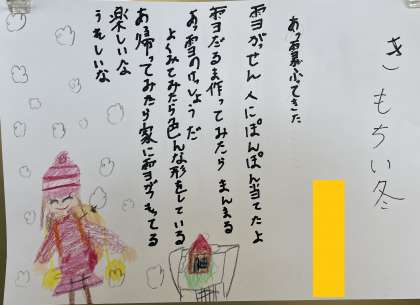 きもちい冬
あっ雪ふってきた
雪がっせん 人にぽんぽん当てたよ
雪だるま作ってみたら まんまる
あっ雪のけっしょうだ
よくみてみたら色んな形をしている
あっ帰ってみたら家に雪がつもってる
楽しいな
うれしいな